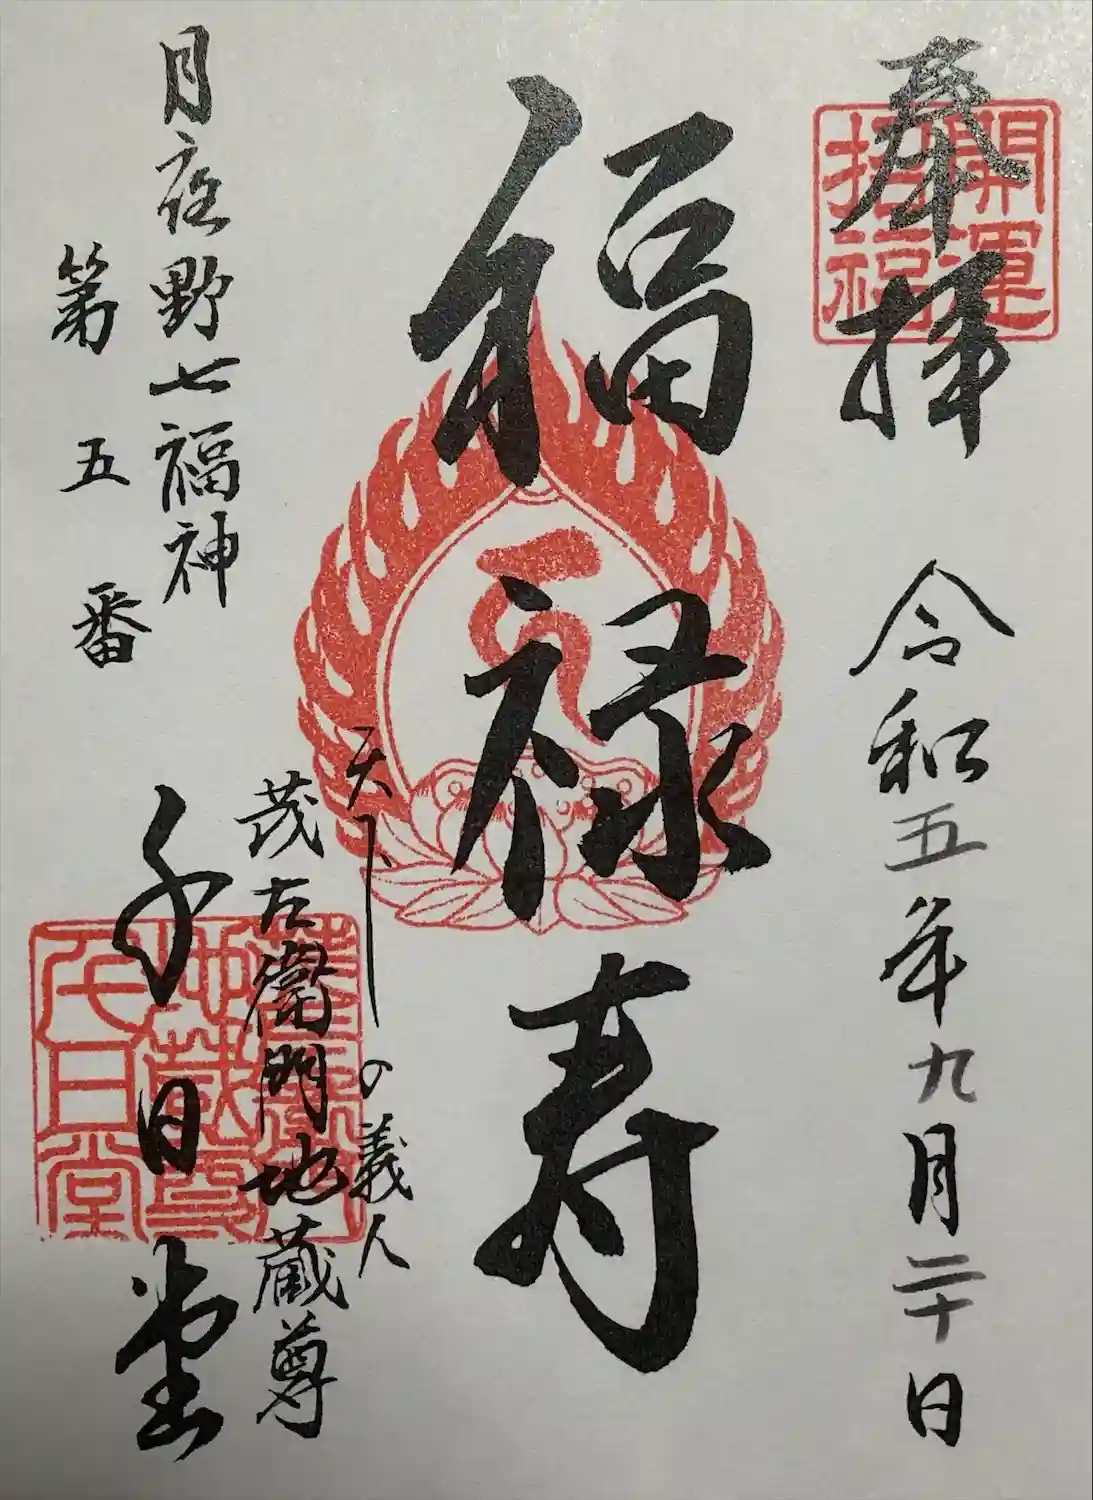 奉拝
開運
招福
令和五年九月二十日
福禄寿
天下の義人
茂左衛門地蔵尊
千日堂
地蔵尊
千日堂
月夜野七福神
第五番